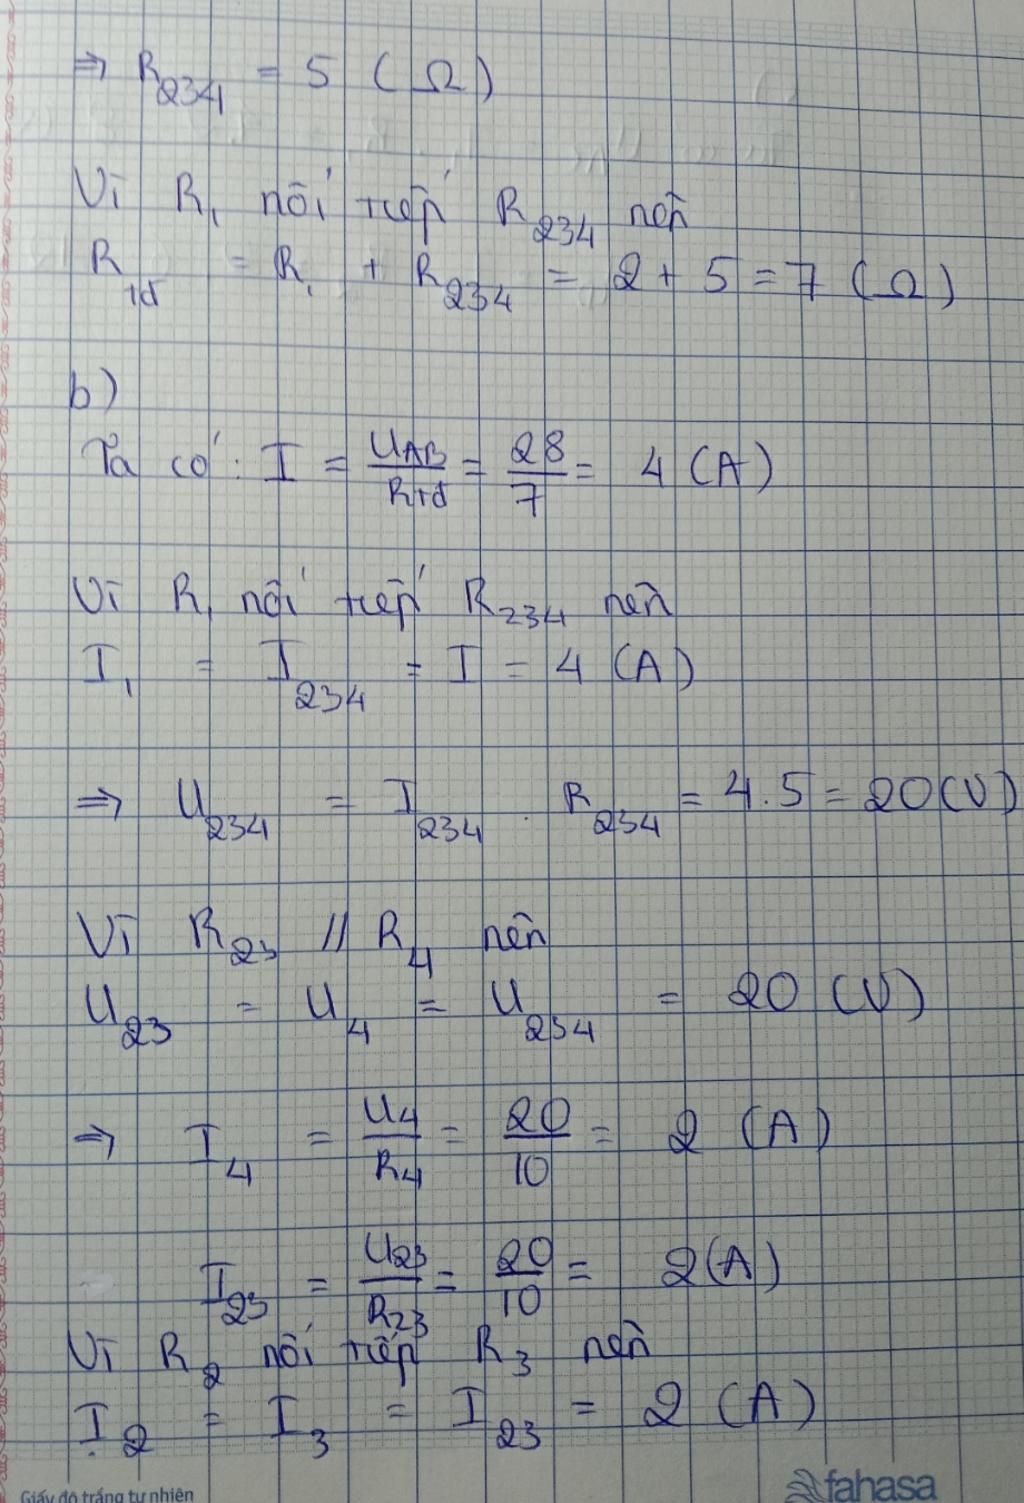 ⇒ R₂₃₄ = 5 (Ω)
Vì R₁ nối tiếp R₂₃₄ nên
Rtđ = R₁ + R₂₃₄ = 2 + 5 = 7 (Ω)
b)
Ta có: I = UAB/Rtđ = 28/7 = 4 (A)
Vì R₁ nối tiếp R₂₃₄ nên
I₁ = I₂₃₄ = I = 4 (A)
⇒ U₂₃₄ = I₂₃₄ . R₂₃₄ = 4.5 = 20(V)
Vì R₂₃ // R₄ nên
U₂₃ = U₄ = U₂₃₄ = 20 (V)
⇒ I₄ = U₄/R₄ = 20/10 = 2 (A)
I₂₃ = U₂₃/R₂₃ = 20/10 = 2(A)
Vì R₂ nối tiếp R₃ nên
I₂ = I₃ = I₂₃ = 2 (A)
Giấy độ trắng tự nhiên
fahasa